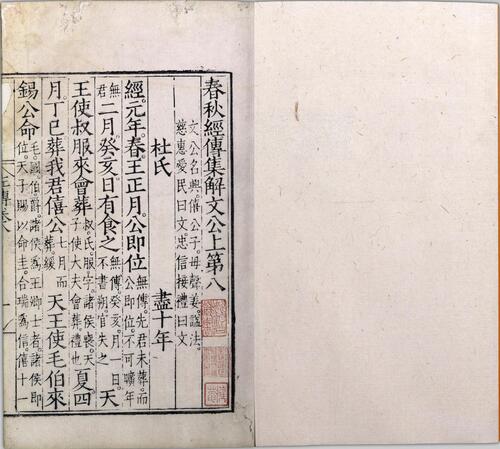 春秋經傳集解文公上第八
文公名興。僖公子。母聲姜。謚法。
慈惠愛民曰文。忠信接禮曰文
杜氏 盡十年
經。元年。春。王正月。公即位 無傳。先君未葬。而公即位。不可曠年
無君 二月。癸亥。日有食之 無傳。癸亥。月一日。不書朔。官失之 天
王使叔服來會葬 叔。氏。服。字。諸侯喪。天子使大夫會葬。禮也 夏四
月。丁巳。葬我君僖公 七月而葬。緩 天王使毛伯來
錫公命 毛。國。伯。爵。諸侯爲王卿士者。諸侯即位。天子賜以命圭。合瑞爲信。僖十一